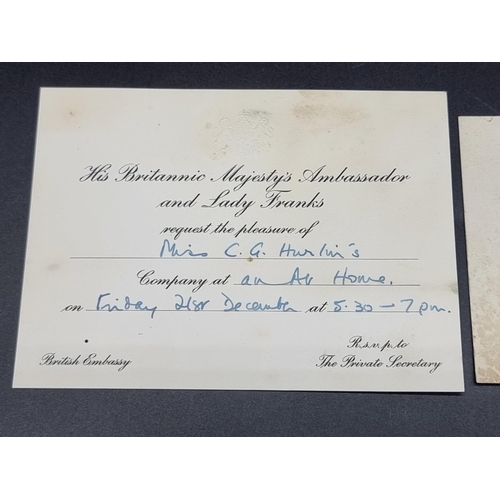 His Britannic Majesty's Ambassador
and Lady Franks
request the pleasure of
Miss C. G. Hurlin's
Company at an At Home.
on Friday 21st December at 5.30 – 7 pm.
British Embassy
R.s.v.p. to
The Private Secretary